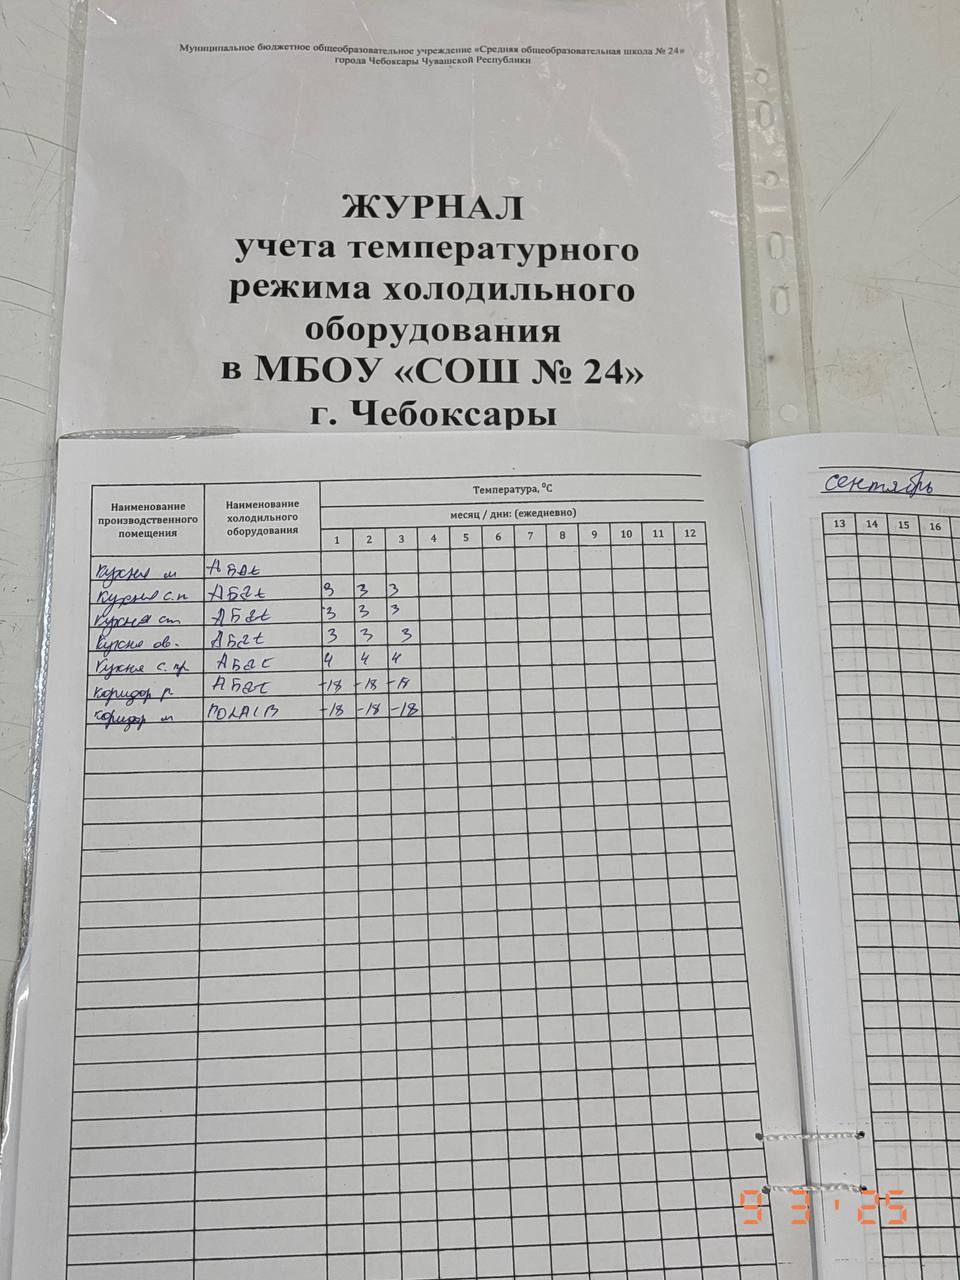 Муниципальное бюджетное общеобразовательное учреждение «Средняя общеобразовательная школа № 24»
города Чебоксары Чувашской Республики
ЖУРНАЛ
учета температурного
режима холодильного
оборудования
в МБОУ «СОШ № 24»
г. Чебоксары
Наименование производственного помещения
Наименование холодильного оборудования
Температура, ⁰С
месяц / дни: (ежедневно)
1 2 3 4 5 6 7 8 9 10 11 12
Кухня м Абат
Кухня с.п Абат 3 3 3
Кухня Абат 3 3 3
Кухня ов. Абат 3 3 3
Кухня с. пр Абат 4 4 4
Коридор р Абат -18 -18 -18
Коридор м POLAIR -18 -18 -18
сентябрь
13 14 15 16
9 3 ' 25